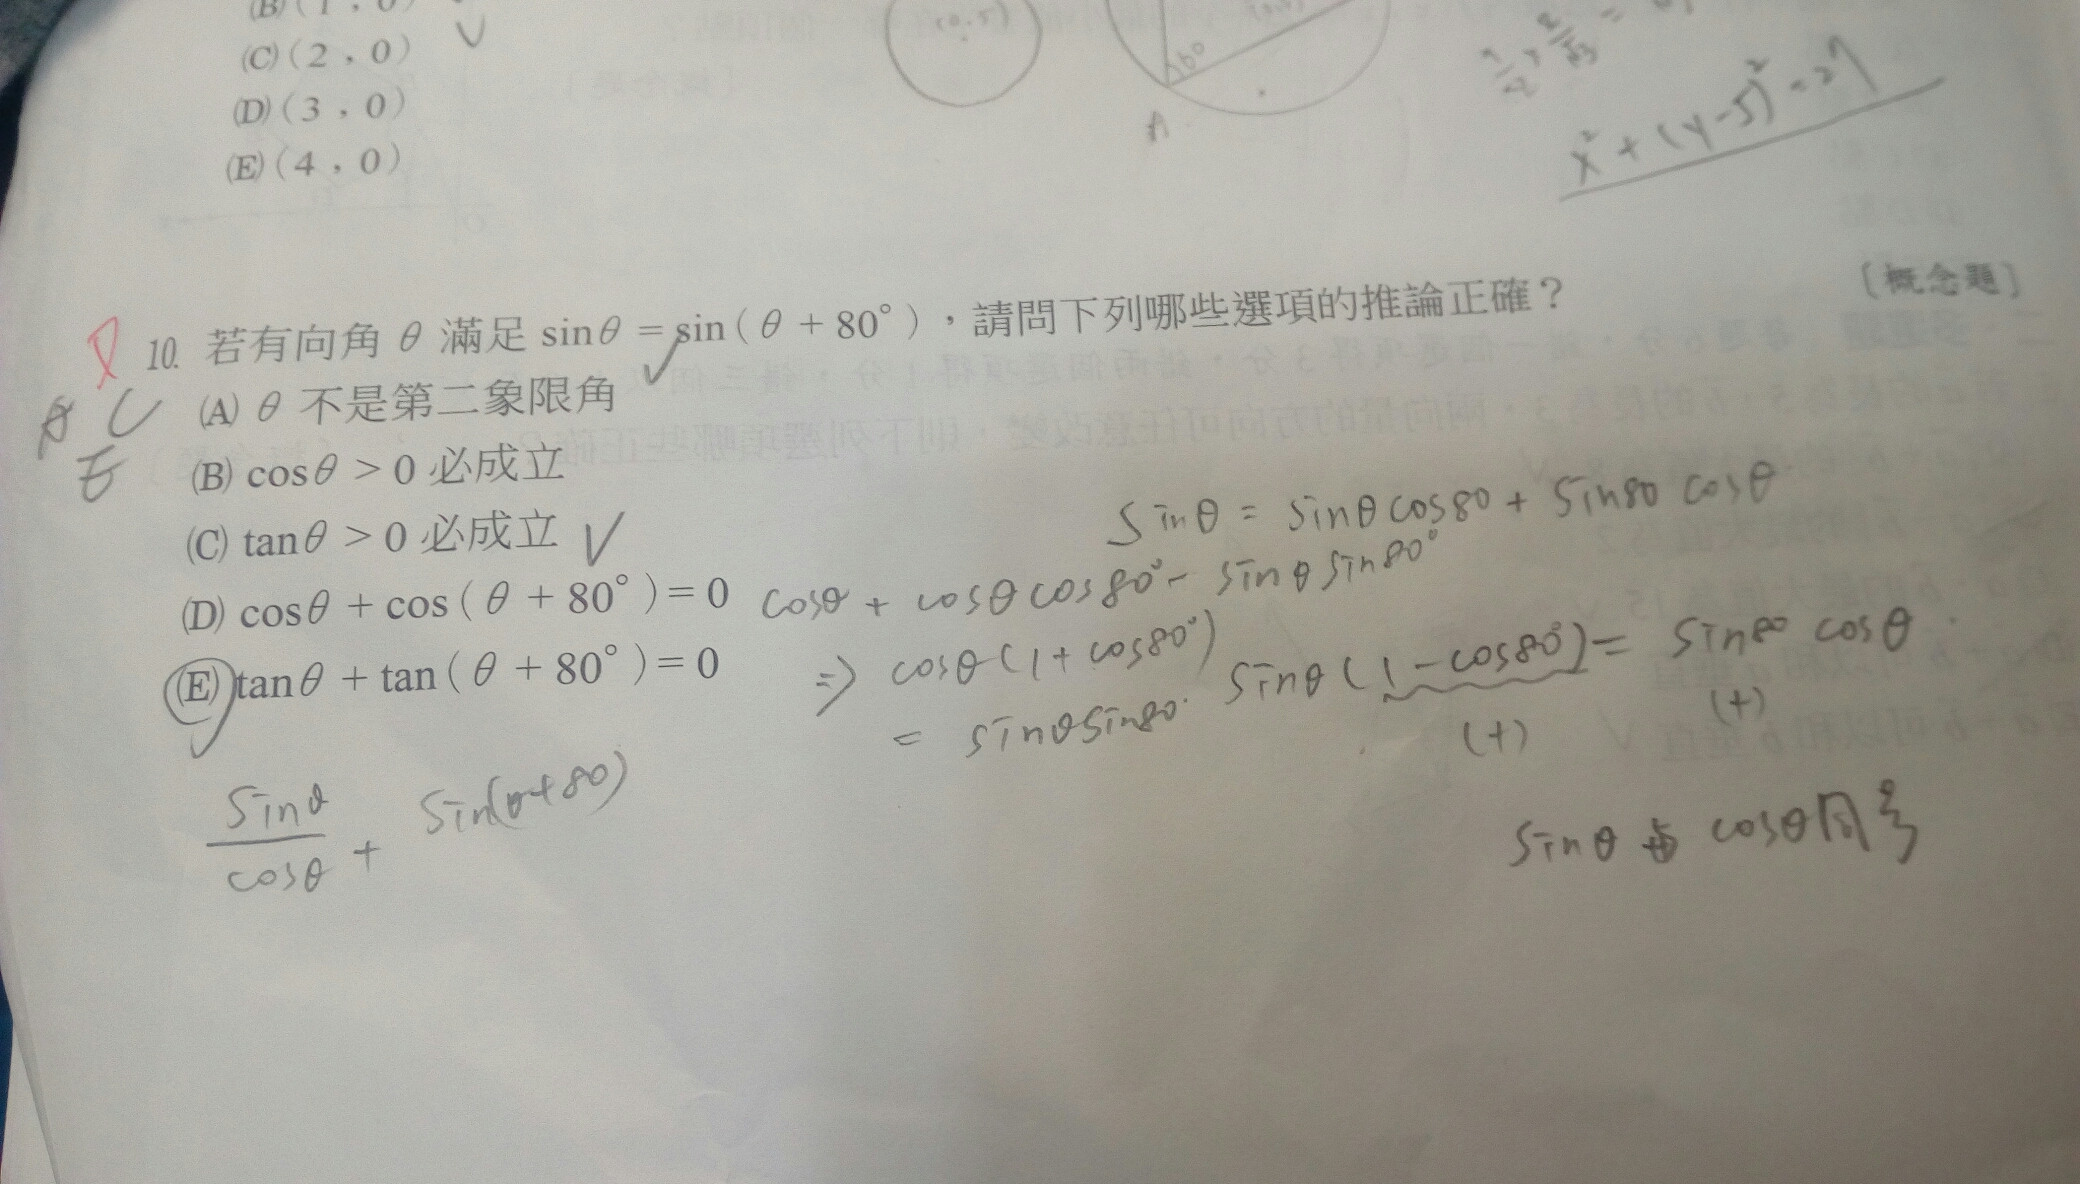 (B)(1，0)
(C)(2，0)
(D)(3，0)
(E)(4，0)
(0.5)
60
A
x²+(y-5)²=27
[概念題]
10. 若有向角 θ 滿足 sinθ = sin(θ + 80°)，請問下列哪些選項的推論正確？
A C
E
(A) θ 不是第二象限角
(B) cosθ > 0 必成立
(C) tanθ > 0 必成立
(D) cosθ + cos(θ + 80°) = 0
(E) tanθ + tan(θ + 80°) = 0
sinθ = sinθ cos80 + sin80 cosθ
cosθ + cosθ cos80° - sinθ sin80°
⇒ cosθ(1+cos80°)
= sinθ sin80°
sinθ(1-cos80°) = sin80 cosθ
(+) (+)
sinθ与cosθ同号
sinθ
cosθ
+ sin(θ+80)